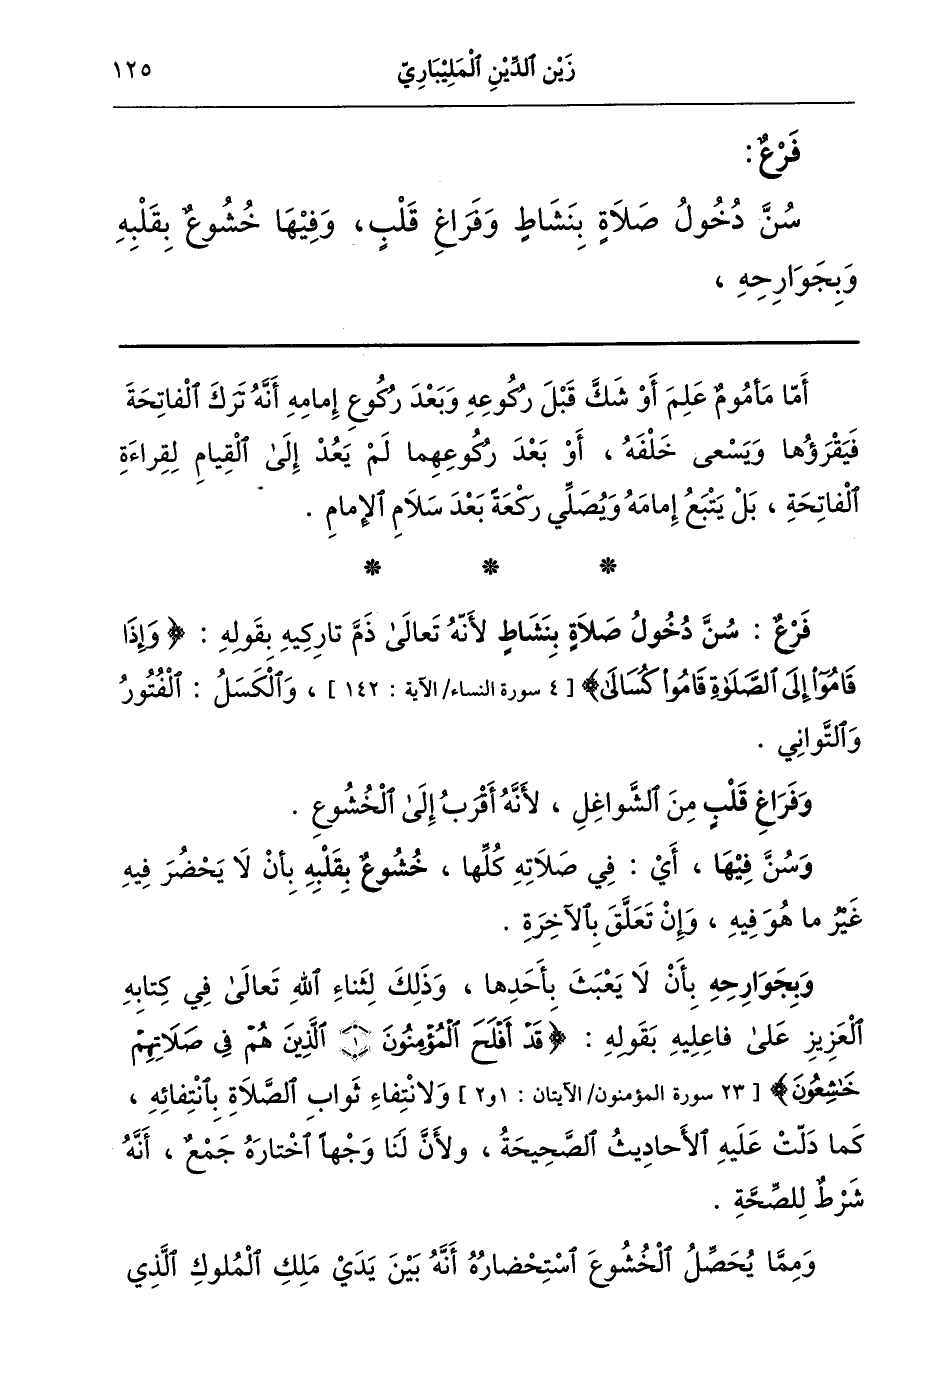 زَيْن ٱلدِّيْنِ ٱلْمَلِيْبَارِيّ ١٢٥
فَرْعٌ:
سُنَّ دُخُولُ صَلَاةٍ بِنَشَاطٍ وَفَرَاغِ قَلْبٍ، وَفِيْهَا خُشُوعٌ بِقَلْبِهِ
وَبِجَوَارِحِهِ ،
أَمّا مَأمُومٌ عَلِمَ أَوْ شَكَّ قَبْلَ رُكُوعِهِ وَبَعْدَ رُكُوعِ إِمامِهِ أَنَّهُ تَرَكَ ٱلْفاتِحَةَ
فَيَقْرَؤُها وَيَسْعى خَلْفَهُ ، أَوْ بَعْدَ رُكُوعِهِما لَمْ يَعُدْ إِلَىٰ ٱلْقِيامِ لِقِراءَةِ
ٱلْفاتِحَةِ ، بَلْ يَتْبَعُ إِمامَهُ وَيُصَلِّي رَكْعَةً بَعْدَ سَلَامِ ٱلإِمامِ .
* * *
فَرْعٌ : سُنَّ دُخُولُ صَلاَةٍ بِنَشَاطٍ لأَنَّهُ تَعالَىٰ ذَمَّ تارِكِيهِ بِقَولِهِ : ﴿ وَإِذَا
قَامُوٓا۟ إِلَى ٱلصَّلَوٰةِ قَامُوا۟ كُسَالَىٰ﴾ [ ٤ سورة النساء/ الآية : ١٤٢ ] ، وَٱلْكَسَلُ : ٱلْفُتُورُ
وَٱلتَّوانِي .
وَفَرَاغِ قَلْبٍ مِنَ ٱلشَّواغِلِ ، لأَنَّهُ أَقْرَبُ إِلَىٰ ٱلْخُشُوعِ .
وَسُنَّ فِيْهَا ، أَيْ : فِي صَلَاتِهِ كُلِّها ، خُشُوعٌ بِقَلْبِهِ بِأنْ لَا يَحْضُرَ فِيهِ
غَيْرُ ما هُوَ فِيهِ ، وَإِنْ تَعَلَّقَ بِٱلآخِرَةِ .
وَبِجَوَارِحِهِ بِأَنْ لَا يَعْبَثَ بِأَحَدِها ، وَذَلِكَ لِثَناءِ ٱللهِ تَعالَىٰ فِي كِتابِهِ
ٱلْعَزِيزِ عَلىٰ فاعِلِيهِ بقَولِهِ : ﴿ قَدْ أَفْلَحَ ٱلْمُؤْمِنُونَ ۝١ ٱلَّذِينَ هُمْ فِى صَلَاتِهِمْ
خَـٰشِعُونَ﴾ [ ٢٣ سورة المؤمنون/ الآيتان : ١و٢ ] وَلانْتِفاءِ ثَوابِ ٱلصَّلاَةِ بِٱنْتِفائِهِ ،
كَما دَلَّتْ عَلَيهِ ٱلأَحادِيثُ ٱلصَّحِيحَةُ ، ولأَنَّ لَنا وَجْهاً ٱخْتارَهُ جَمْعٌ ، أَنَّهُ
شَرْطٌ لِلصِّحَّةِ .
وَمِمَّا يُحَصِّلُ ٱلْخُشُوعَ ٱسْتِحْضارُهُ أَنَّهُ بَيْنَ يَدَيْ مَلِكِ ٱلْمُلوكِ ٱلَّذِي